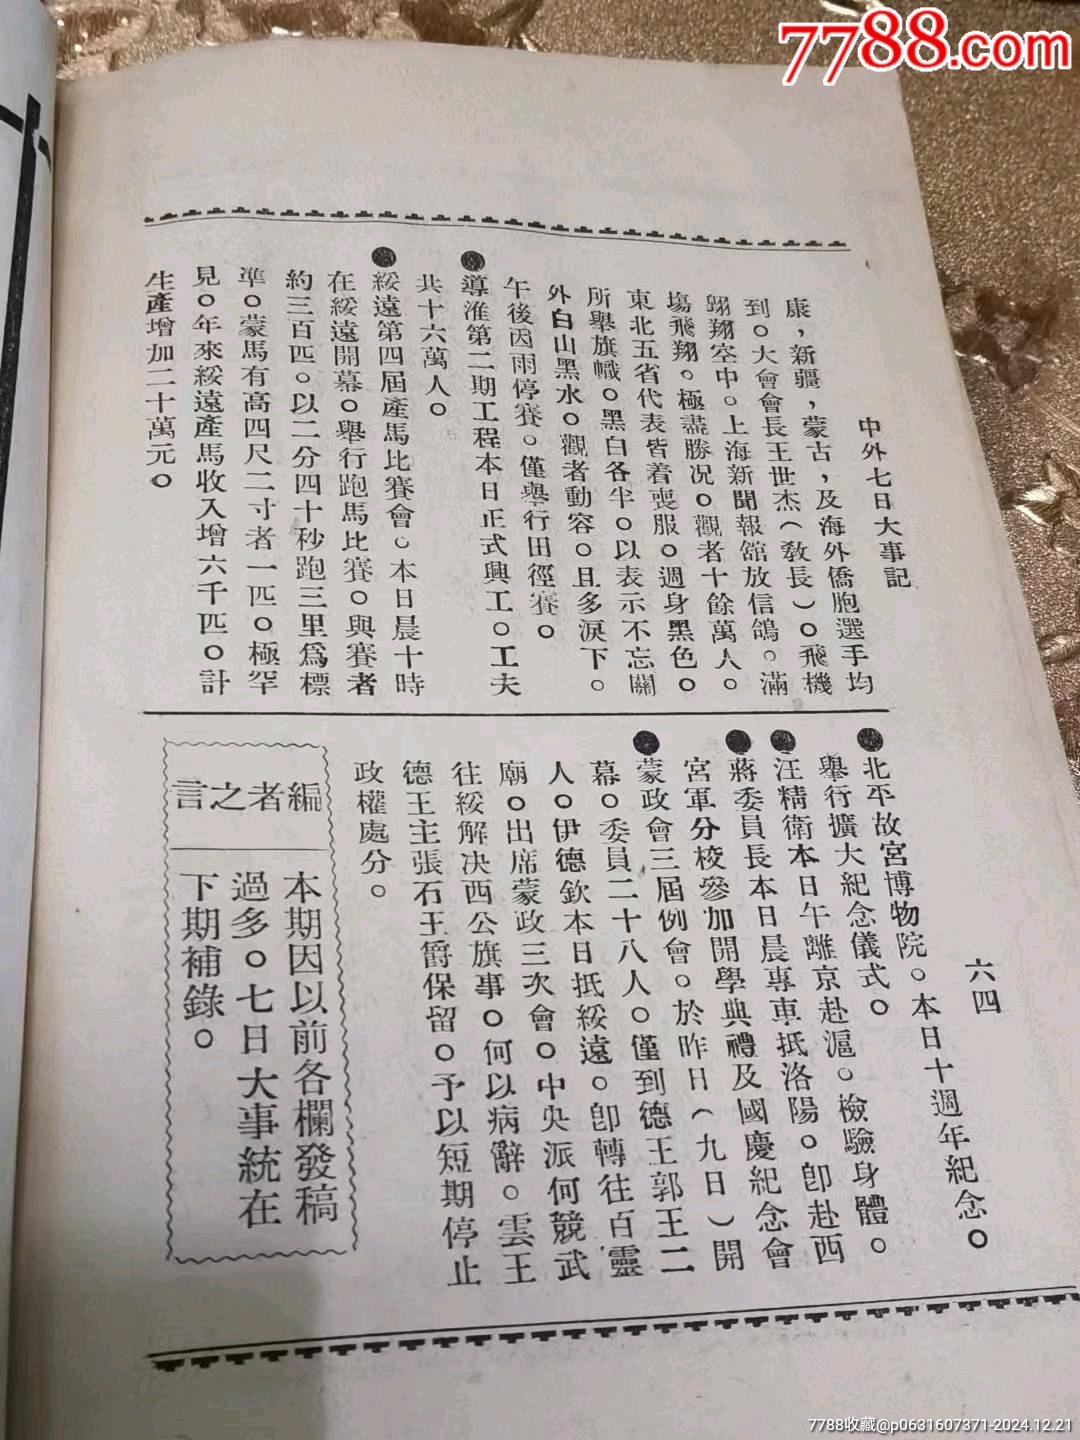 7788.com
中外七日大事記
康，新疆，蒙古，及海外僑胞選手均
到。大會會長王世杰（敎長）。飛機
翺翔空中。上海新聞報館放信鴿。滿
塲飛翔。極盡勝況。觀者十餘萬人。
東北五省代表皆着喪服。週身黑色。
所舉旗幟。黑白各半。以表示不忘關
外白山黑水。觀者動容。且多淚下。
午後因雨停賽。僅舉行田徑賽。
●導淮第二期工程本日正式興工。工夫
共十六萬人。
●綏遠第四屆產馬比賽會。本日晨十時
在綏遠開幕。舉行跑馬比賽。與賽者
約三百匹。以二分四十秒跑三里爲標
準。蒙馬有高四尺二寸者一匹。極罕
見。年來綏遠產馬收入增六千匹。計
生產增加二十萬元。
六四
●北平故宮博物院。本日十週年紀念。
舉行擴大紀念儀式。
●汪精衛本日午離京赴滬。檢驗身體。
●蔣委員長本日晨專車抵洛陽。卽赴西
宮軍分校參加開學典禮及國慶紀念會
●蒙政會三屆例會。於昨日（九日）開
幕。委員二十八人。僅到德王郭王二
人。伊德欽本日抵綏遠。卽轉往百靈
廟。出席蒙政三次會。中央派何競武
往綏解決西公旗事。何以病辭。雲王
德王主張石王爵保留。予以短期停止
政權處分。
編者之言
本期因以前各欄發稿
過多。七日大事統在
下期補錄。
7788收藏@p0631607371-2024.12.21